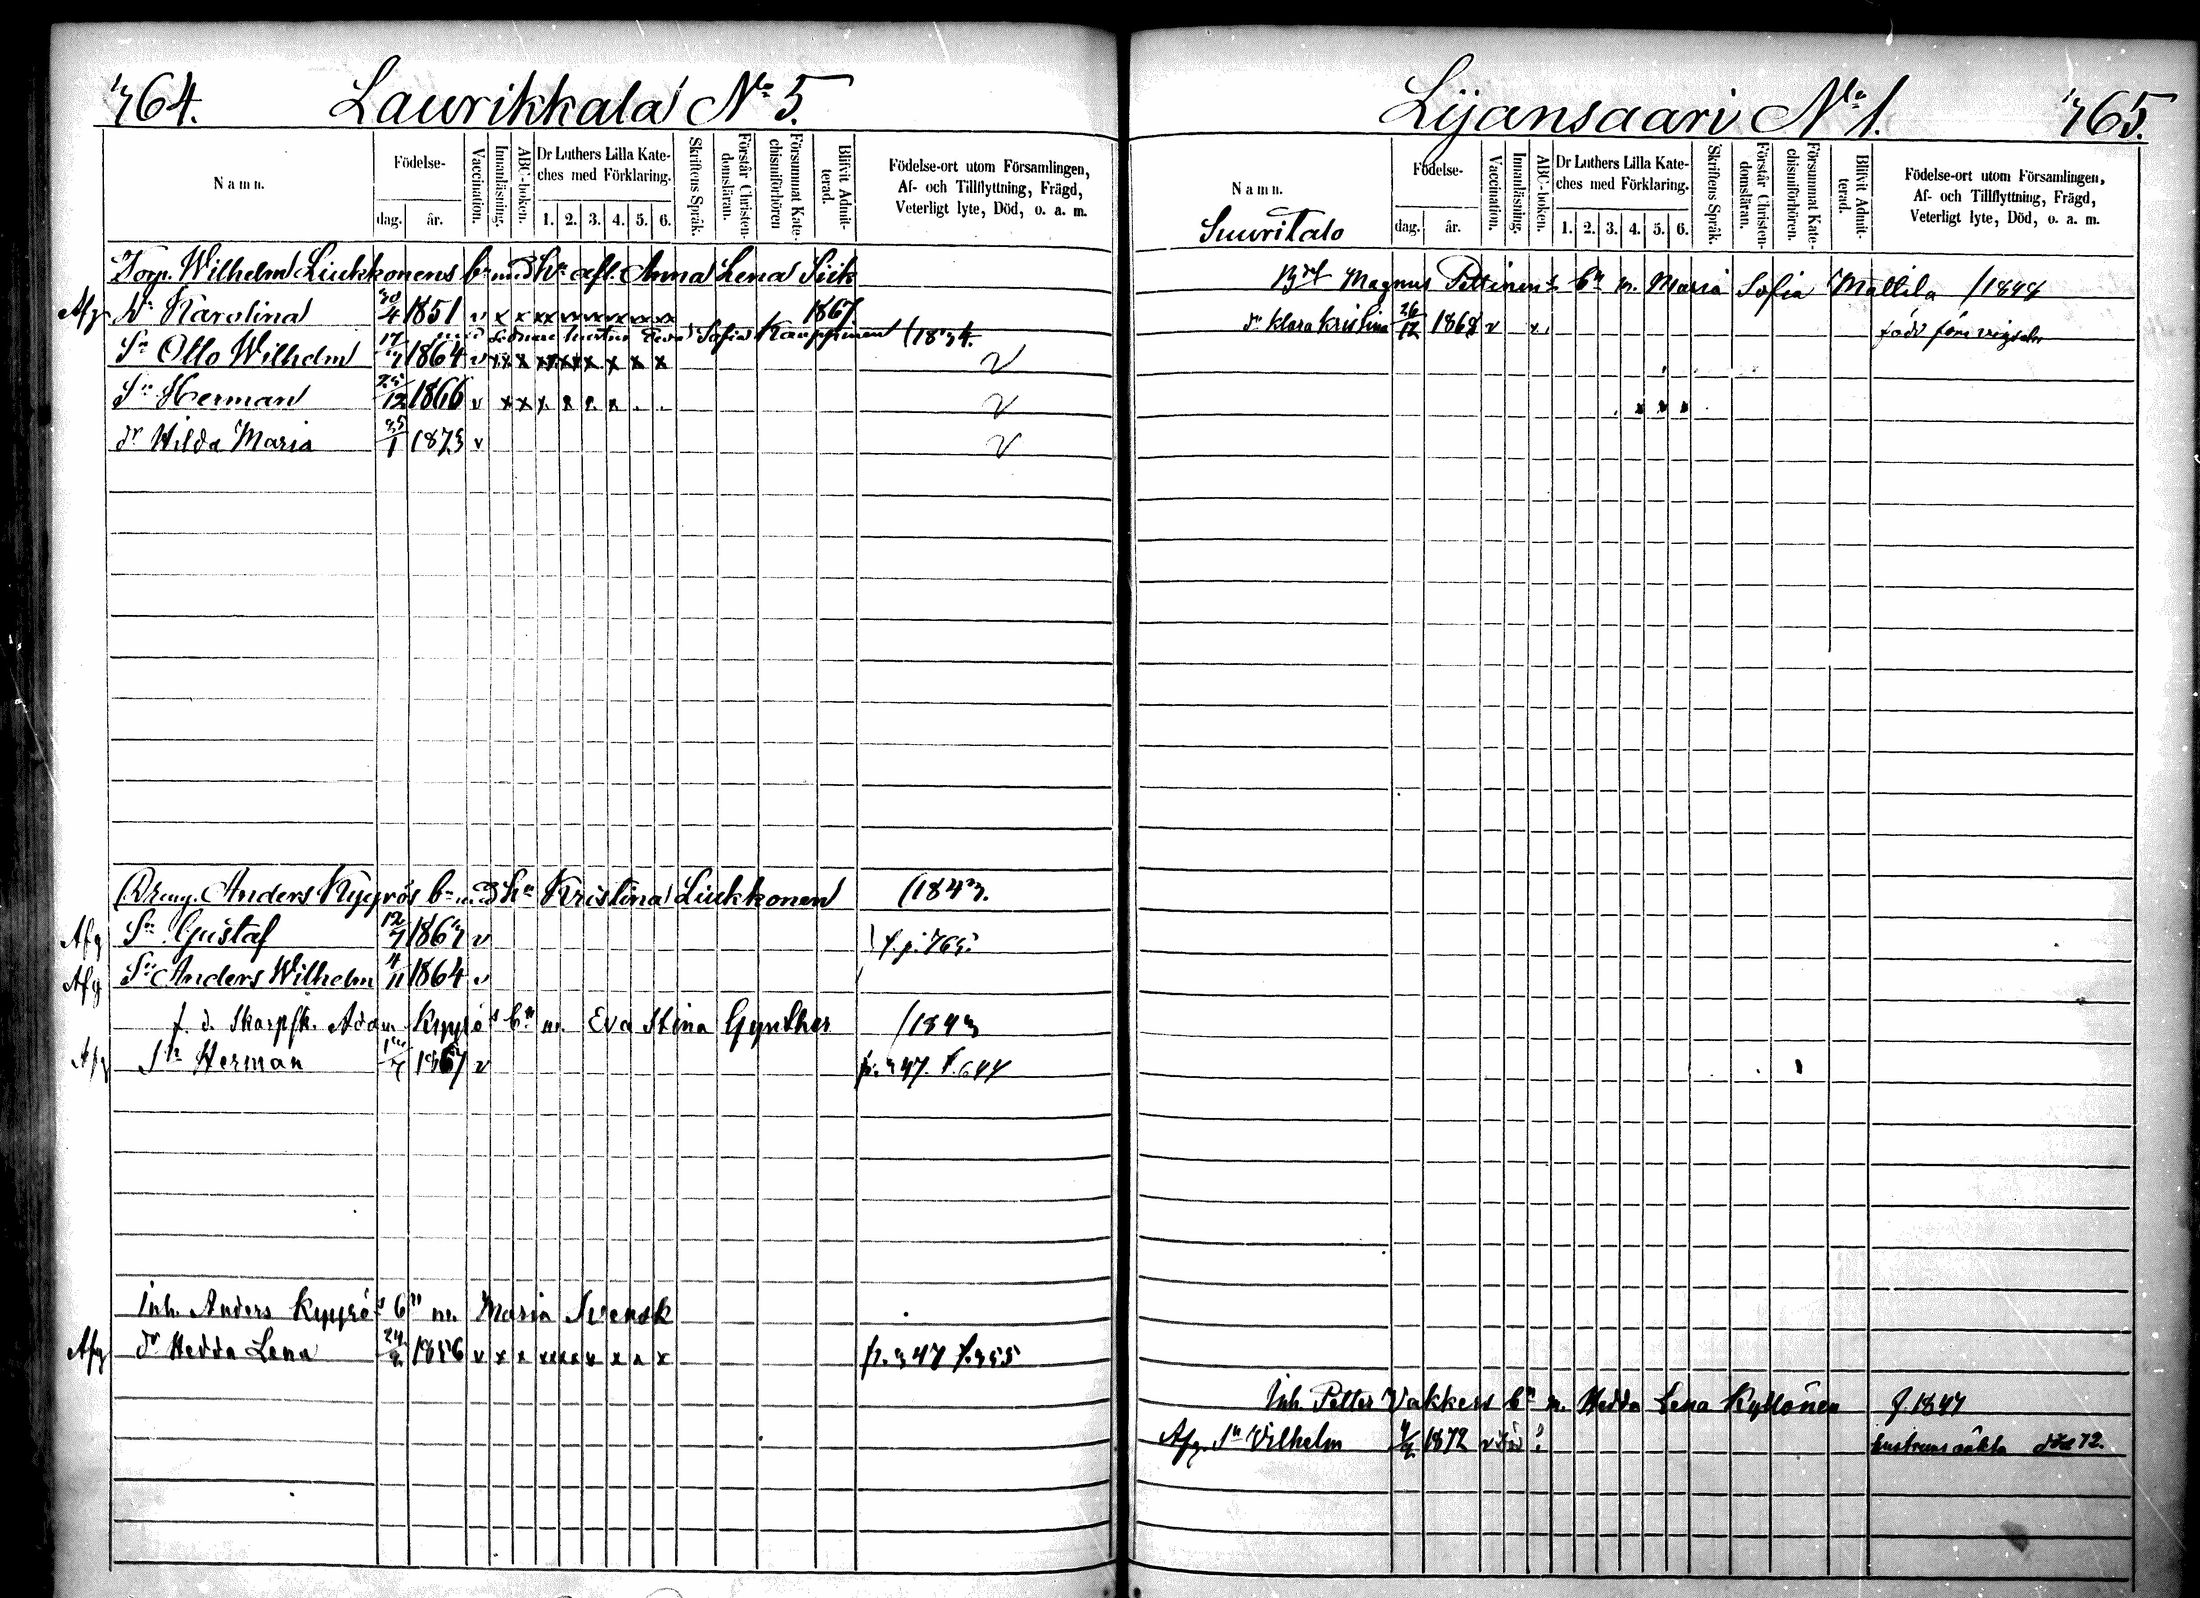 764. Laurikkala No 5.
Namn.
Födelse-
dag. år.
Vaccination.
Innanläsning.
ABC-boken.
Dr Luthers Lilla Kateches med Förklaring.
1. 2. 3. 4. 5. 6.
Skriftens Språk.
Förstår Christendomsläran.
Försummat Katechismiförhören
Blifvit Admitterad.
Födelse-ort utom Församlingen,
Af- och Tillflyttning, Frägd,
Veterligt lyte, Död, o. a. m.
Torp. Wilhelm Liukkonens bn med hn afl. Anna Lena Siik
Afg Dr Karolina 30/4 1851 v x x xx xx xx xx xx xx 1867
med sednare hustrun Eva Sofia Kauppinen (1834.
Sn Otto Wilhelm 17/7 1864 v xx x xx xx x x x x v
Sn Herman 25/12 1866 v x x x x x x v
dr Hilda Maria 25/1 1873 v v
Dreng. Anders Kyyrös bn med hn Kristina Liukkonen (1843.
Afg Sn Gustaf 12/7 1862 v
Afg Sn Anders Wilhelm 4/11 1864 v
f. d. Skarpsk. Adam Kyyrö's bn m. Eva Stina Gynther (1843
Afg Sn Herman 1867 v p. 347. f. 644
Inh. Anders Kyyrö's bn m. Maria Svensk
Afg dr Hedda Lena 24/2 1856 v x x xx xx x x x x p. 347 f. 355
Lijansaari No 1. 765.
Namn.
Suuritalo
Födelse-
dag. år.
Vaccination.
Innanläsning.
ABC-boken.
Dr Luthers Lilla Kateches med Förklaring.
1. 2. 3. 4. 5. 6.
Skriftens Språk.
Förstår Christendomsläran.
Försummat Katechismiförhören.
Blifvit Admitterad.
Födelse-ort utom Församlingen,
Af- och Tillflyttning, Frägd,
Veterligt lyte, Död, o. a. m.
Magnus Pettinen's bn m. Maria Sofia Mattila /1848
dr Klara Kristina 26/12 1868 v x född före vigseln
Inh. Petter Vakkers bn m. Hedda Lena Kyllönen f. 1847
Afg. Sn Vilhelm 1872 v hustruns oäkta död 72.